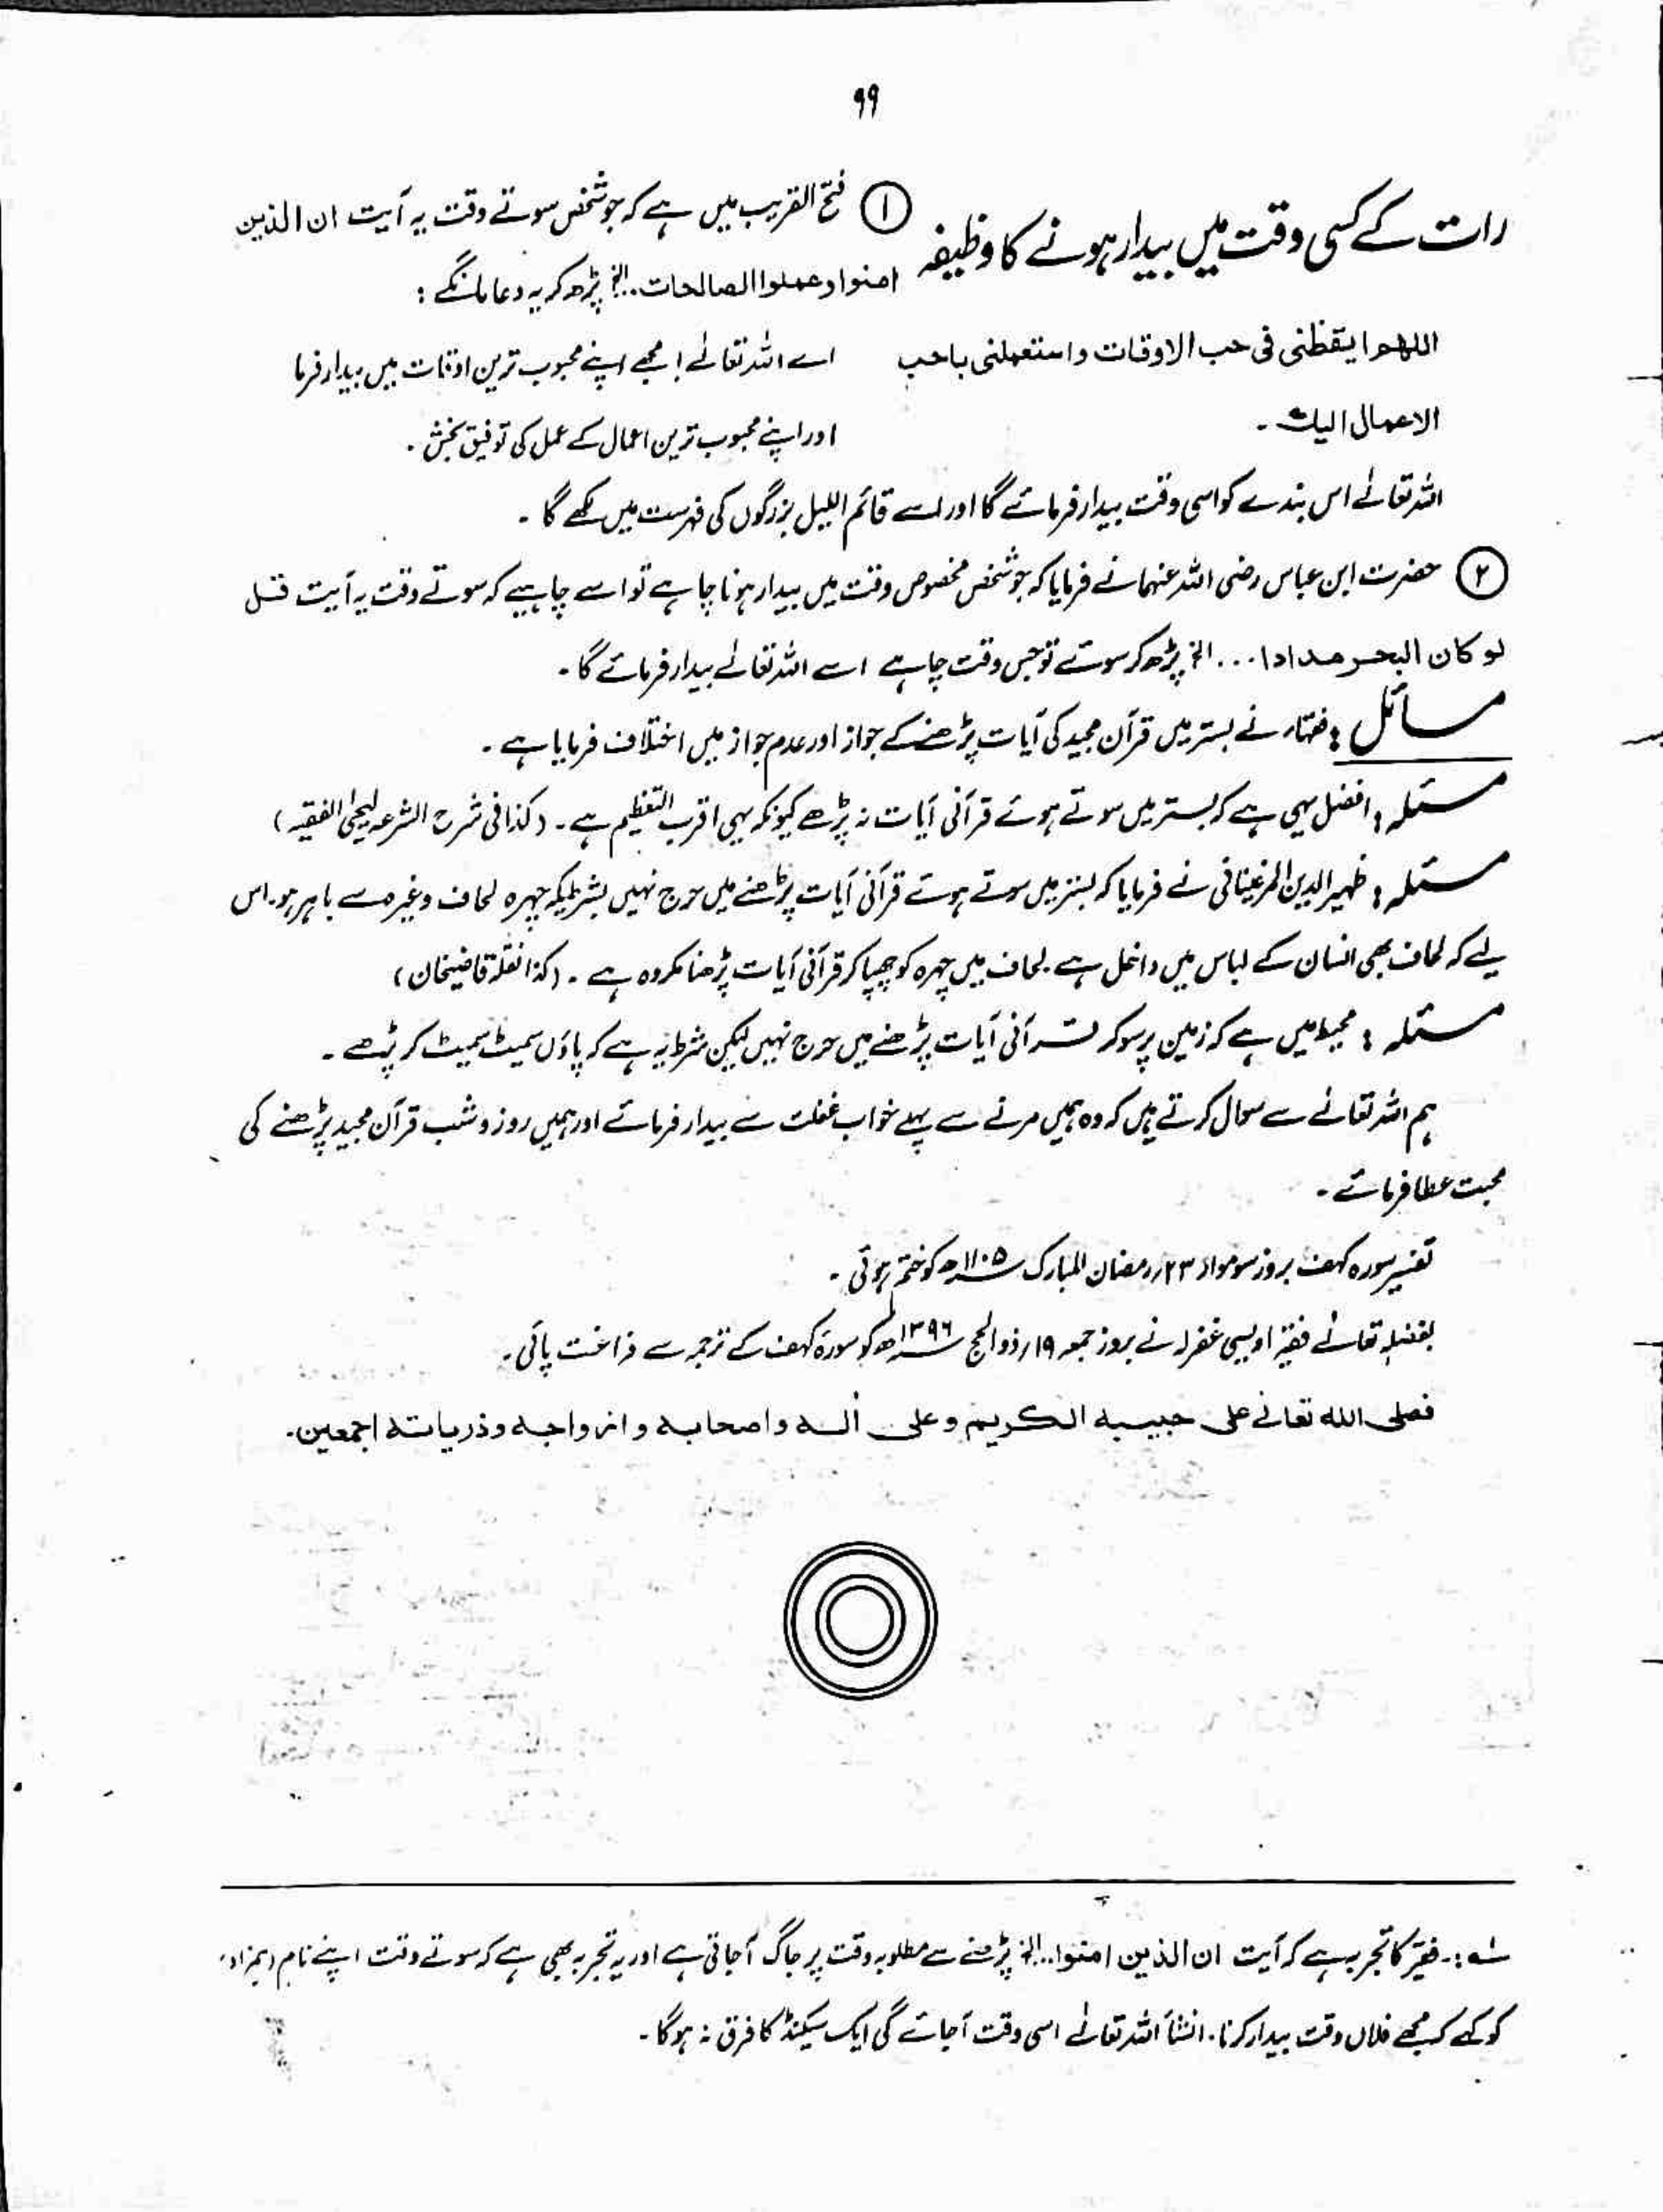 ۹۹
رات کے کسی وقت میں بیدار ہونے کا وظیفہ ① فتح القریب میں ہے کہ جو شخص سوتے وقت یہ آیت ان الذین
امنوا وعملوا الصالحات.. الخ پڑھ کر یہ دعا مانگے :
اللھم ایقظنی فی حب الاوقات واستعملنی باحب اے اللہ تعالےٰ! مجھے اپنے محبوب ترین اوقات میں بیدار فرما
الاعمال الیك ۔ اور اپنے محبوب ترین اعمال کے عمل کی توفیق بخش ۔
اللہ تعالےٰ اس بندے کو اسی وقت بیدار فرمائے گا اور اسے قائم اللیل بزرگوں کی فہرست میں لکھے گا ۔
② حضرت ابن عباس رضی اللہ عنہما نے فرمایا کہ جو شخص مخصوص وقت میں بیدار ہونا چاہے تو اسے چاہیے کہ سوتے وقت یہ آیت قل
لو کان البحر مدادا ... الخ پڑھ کر سوئے تو جس وقت چاہے اسے اللہ تعالےٰ بیدار فرمائے گا ۔
مسائل : فقہاء نے بستر میں قرآن مجید کی آیات پڑھنے کے جواز اور عدم جواز میں اختلاف فرمایا ہے ۔
مسئلہ : افضل یہی ہے کہ بستر میں سوتے ہوئے قرآنی آیات نہ پڑھے کیونکہ یہی اقرب التعظیم ہے ۔ (کذا فی شرح الشرعہ لیحیٰ الفقیہ)
مسئلہ : ظہیر الدین المرغینانی نے فرمایا کہ بستر میں سوتے ہوئے قرآنی آیات پڑھنے میں حرج نہیں بشرطیکہ چہرہ لحاف وغیرہ سے باہر ہو۔ اس
لیے کہ لحاف بھی انسان کے لباس میں داخل ہے۔ لحاف میں چہرہ کو چھپا کر قرآنی آیات پڑھنا مکروہ ہے ۔ (کذا نقلہ قاضیخان)
مسئلہ : محیط میں ہے کہ زمین پر سو کر قرآنی آیات پڑھنے میں حرج نہیں لیکن شرط یہ ہے کہ پاؤں سمیٹ سمیٹ کر پڑھے ۔
ہم اللہ تعالےٰ سے سوال کرتے ہیں کہ وہ ہمیں مرنے سے پہلے خواب غفلت سے بیدار فرمائے اور ہمیں روز و شب قرآن مجید پڑھنے کی
محبت عطا فرمائے ۔
تفسیر سورہ کہف بروز سوموار ۲۳؍ رمضان المبارک ۱۱۰۵ھ کو ختم ہوئی ۔
بفضلہ تعالےٰ فقیر اویسی غفرلہ نے بروز جمعہ ۱۹؍ ذوالحج ۱۳۹۶ھ کو سورۃ کہف کے ترجمہ سے فراغت پائی ۔
فصلی اللہ تعالےٰ علی حبیبہ الکریم وعلی اٰلہ واصحابہ وازواجہ وذریاتہ اجمعین۔
لہ :۔ فقیر کا تجربہ ہے کہ آیت ان الذین امنوا... الخ پڑھنے سے مطلوبہ وقت پر جاگ آجاتی ہے اور یہ تجربہ بھی ہے کہ سوتے وقت اپنے نام (ہمزاد)
کو کہے کہ مجھے فلاں وقت بیدار کرنا۔ انشأ اللہ تعالےٰ اسی وقت آجائے گی ایک سیکنڈ کا فرق نہ ہوگا ۔